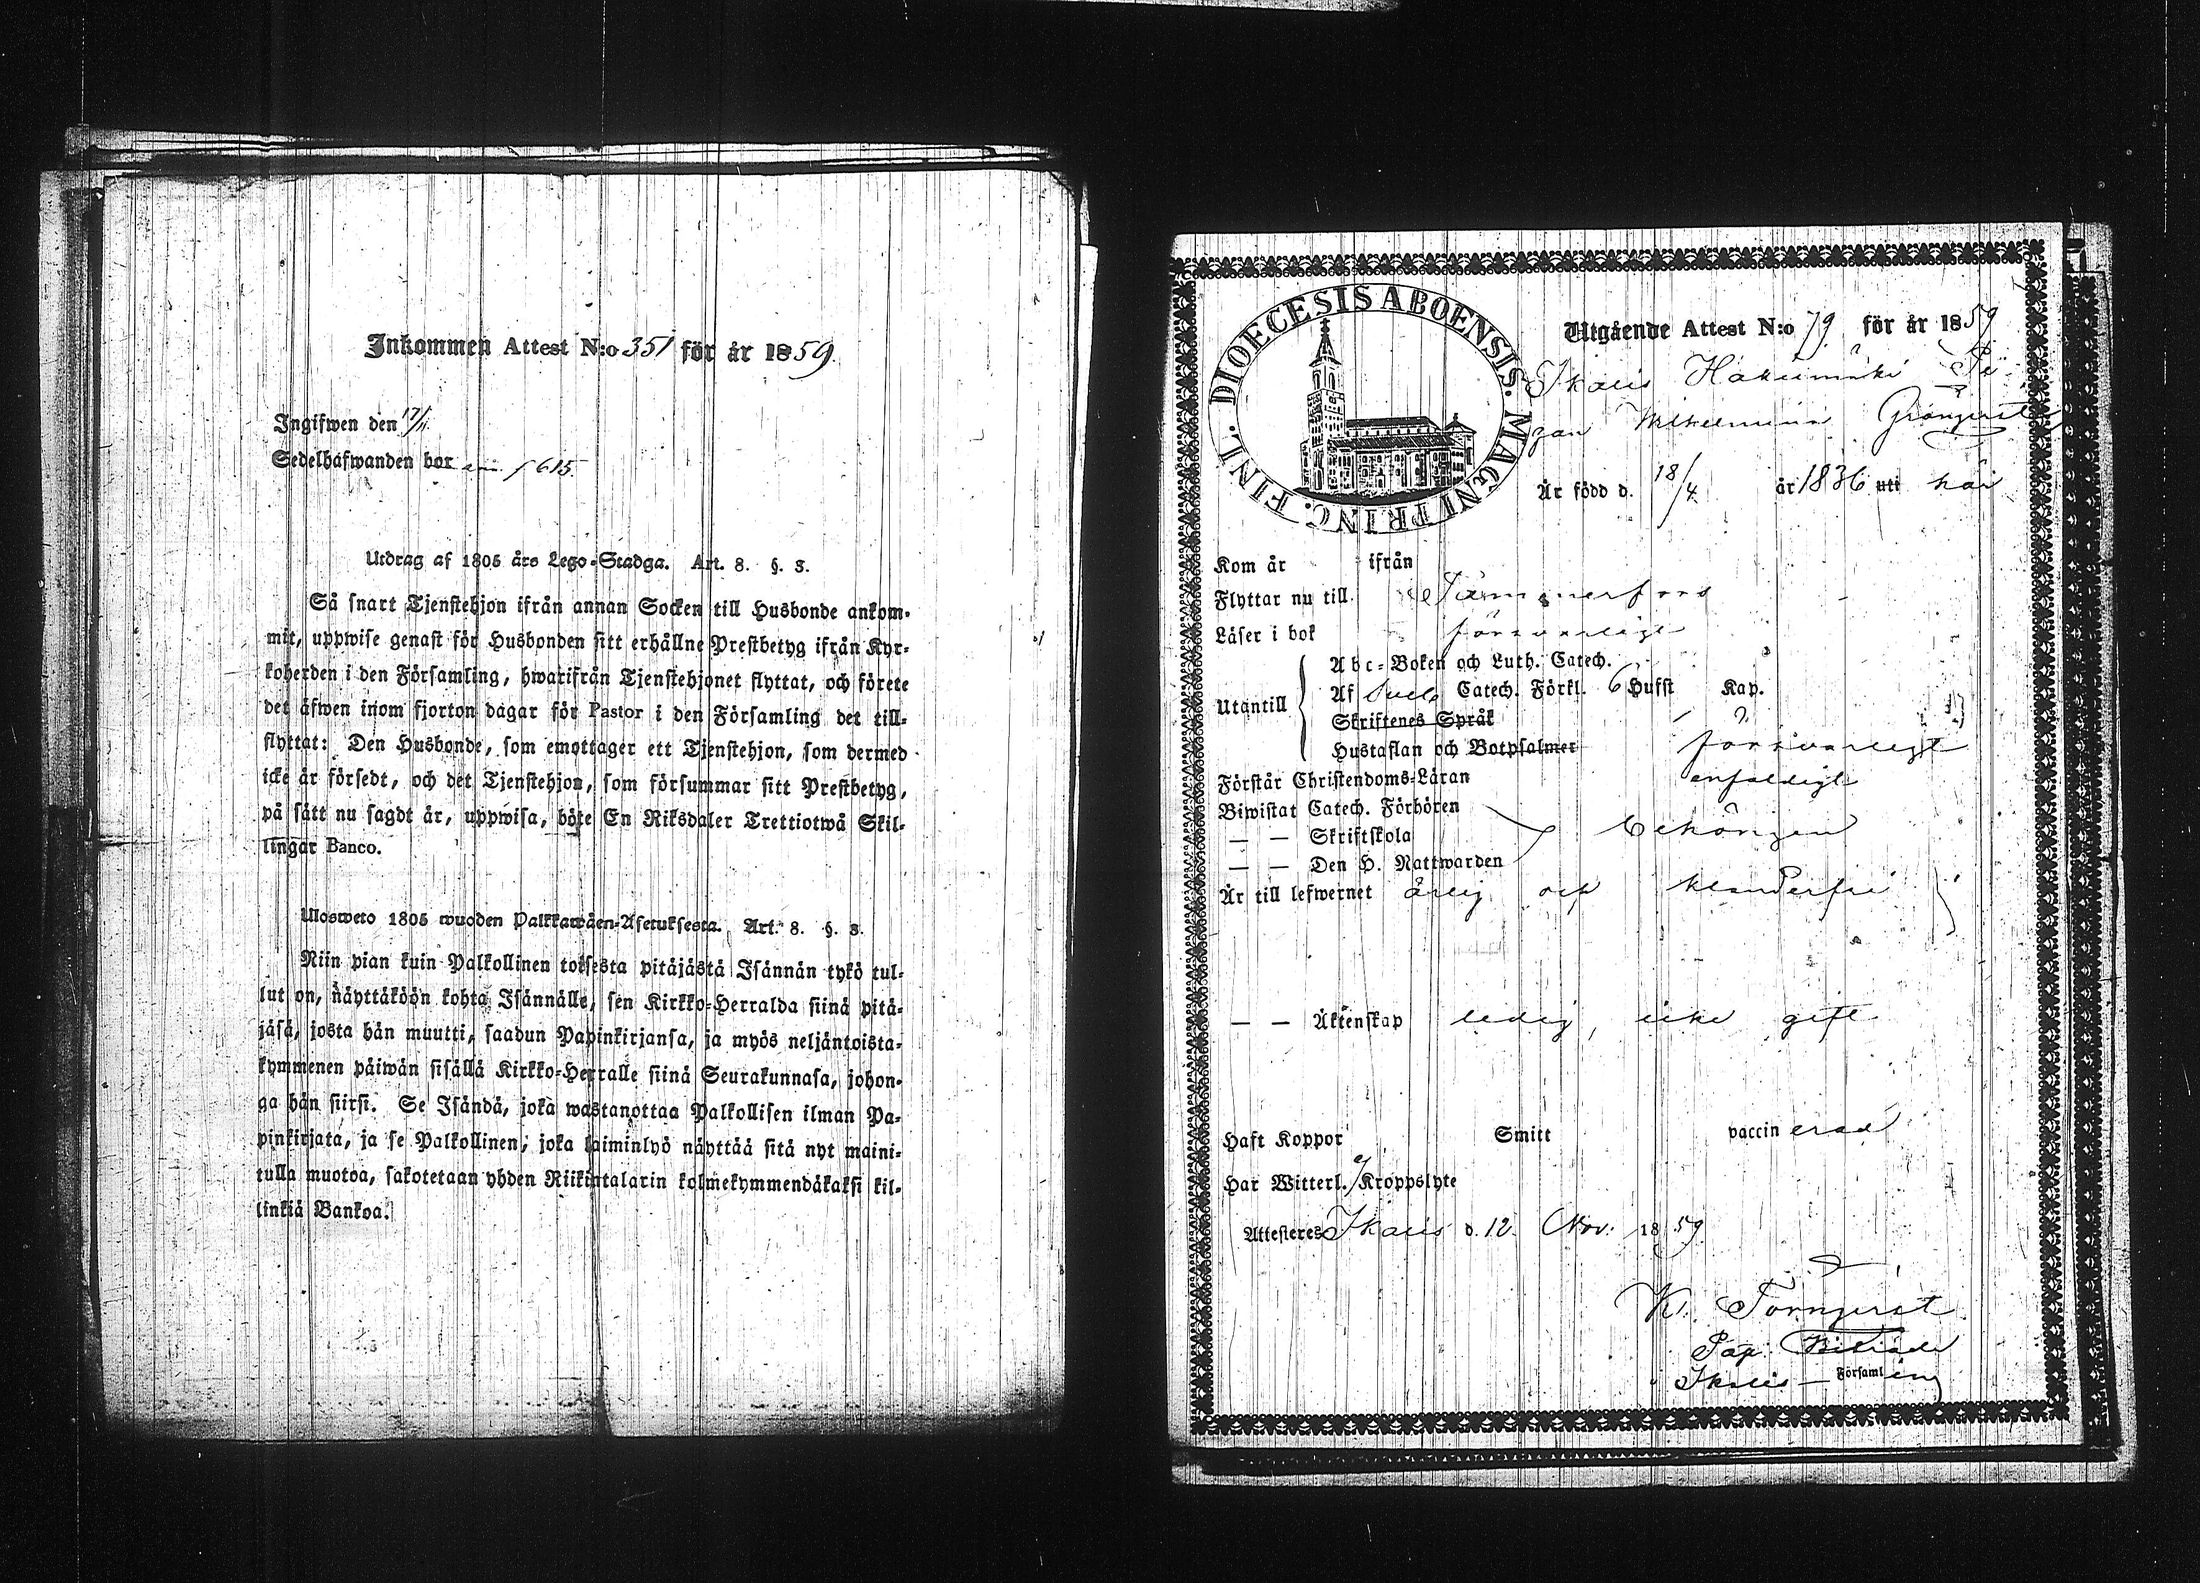 Inkommen Attest N:o 351 för år 1859.
Ingifwen den 17/11
Sedelhafwanden bor p 615
Utdrag af 1805 års Lego-Stadga. Art. 8. §. 3.
Så snart Tjenstehjon ifrån annan Socken till Husbonde ankom-
mit, uppwise genast för Husbonden sitt erhållne Prestbetyg ifrån Kyr-
koherden i den Församling, hwarifrån Tjenstehjonet flyttat, och förete
det äfwen inom fjorton dagar för Pastor i den Församling det till-
flyttat: Den Husbonde, som emottager ett Tjenstehjon, som dermed
icke är försedt, och det Tjenstehjon, som försummar sitt Prestbetyg,
på sätt nu sagdt är, uppwisa, böte En Riksdaler Trettiotwå Skil-
lingar Banco.
Ulosweto 1805 wuoden Palkkawäen-Asetuksesta. Art. 8. §. 3.
Niin pian kuin Palkollinen toisesta pitäjästä Isännän tykö tul-
lut on, näyttäköön kohta Isännälle, sen Kirkko-Herralda siinä pitä-
jäsä, josta hän muutti, saadun Papinkirjansa, ja myös neljäntoista-
kymmenen päiwän sisällä Kirkko-Herralle siinä Seurakunnasa, johon-
ga hän siirsi. Se Isändä, joka wastanottaa Palkollisen ilman Pa-
pinkirjata, ja se Palkollinen, joka laiminlyö näyttää sitä nyt maini-
tulla muotoa, sakotetaan yhden Riikintalarin kolmekymmendäkaksi kil-
linkiä Bankoa.
DIOECESIS ABOENSIS. MAGNI PRINC. FINL.
Utgående Attest N:o 79 för år 1859
Ikalis Hakumäki Pi-
gan Wilhelmina Grönqvist
Är född d. 18/4 år 1836 uti här
Kom år ifrån
Flyttar nu till Tammerfors
Läser i bok försvarligt
Utantill
Abc-Boken och Luth. Catech.
Af Sveb. Catech. Förkl. 6 Hufst Kap.
Skriftenes Språk
Hustaflan och Botpsalmer försvarligt
Förstår Christendoms-Läran enfaldigt
Biwistat Catech. Förhören
— — Skriftskola behörigen
— — Den H. Nattwarden
Är till lefwernet ärlig och klanderfri
— — Äktenskap ledig, icke gift
Haft Koppor Smitt vaccinerad
Har Witterl. ej Kroppslyte
Attesteres Ikalis d. 12 Nov. 1859
K. Törnqvist
Pap. Biträde
i Ikalis Församling